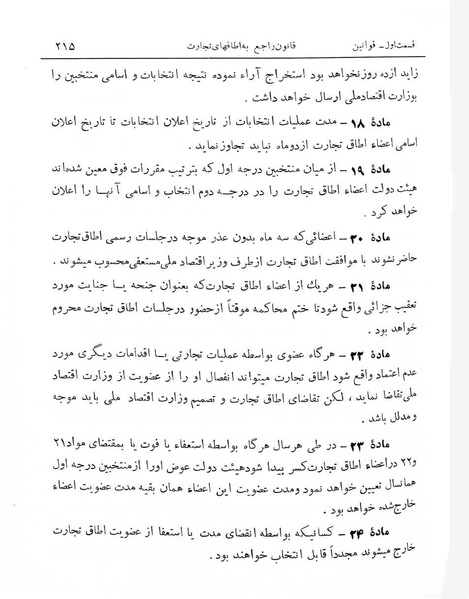 قسمت اول ـ قوانین قانون راجع به اطاقهای تجارت ۲۱۵
زاید ازده روز نخواهد بود استخراج آراء نموده نتیجه انتخابات و اسامی منتخبین را
بوزارت اقتصاد ملی ارسال خواهد داشت .
مادۀ ۱۸ ـ مدت عملیات انتخابات از تاریخ اعلان انتخابات تا تاریخ اعلان
اسامی اعضاء اطاق تجارت ازدوماه نباید تجاوز نماید .
مادۀ ۱۹ ـ از میان منتخبین درجه اول که بترتیب مقررات فوق معین شده‌اند
هیئت دولت اعضاء اطاق تجارت را در درجه دوم انتخاب و اسامی آنها را اعلان
خواهد کرد .
مادۀ ۲۰ ـ اعضائی‌که سه ماه بدون عذر موجه درجلسات رسمی اطاق تجارت
حاضر نشوند با موافقت اطاق تجارت ازطرف وزیر اقتصاد ملی مستعفی محسوب میشوند .
مادۀ ۲۱ ـ هریک از اعضاء اطاق تجارت‌که بعنوان جنحه یا جنایت مورد
تعقیب جزائی واقع شود تا ختم محاکمه موقتاً ازحضور درجلسات اطاق تجارت محروم
خواهد بود .
مادۀ ۲۲ ـ هرگاه عضوی بواسطه عملیات تجارتی یا اقدامات دیگری مورد
عدم اعتماد واقع شود اطاق تجارت میتواند انفصال او را از عضویت از وزارت اقتصاد
ملی تقاضا نماید ، لکن تقاضای اطاق تجارت و تصمیم وزارت اقتصاد ملی باید موجه
و مدلل باشد .
مادۀ ۲۳ ـ در طی هرسال هرگاه بواسطه استعفاء یا فوت یا بمقتضای مواد۲۱
و۲۲ دراعضاء اطاق تجارت‌کسر پیدا شود هیئت دولت عوض اورا ازمنتخبین درجه اول
همانسال تعیین خواهد نمود ومدت عضویت این اعضاء همان بقیه مدت عضویت اعضاء
خارج‌شده خواهد بود .
مادۀ ۲۴ ـ کسانیکه بواسطه انقضای مدت یا استعفا از عضویت اطاق تجارت
خارج میشوند مجدداً قابل انتخاب خواهند بود .